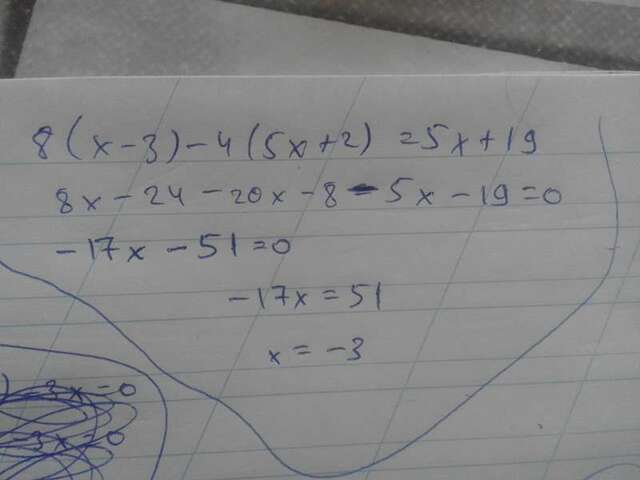 8(x-3)-4(5x+2)=5x+19
8x-24-20x-8-5x-19=0
-17x-51=0
-17x=51
x=-3